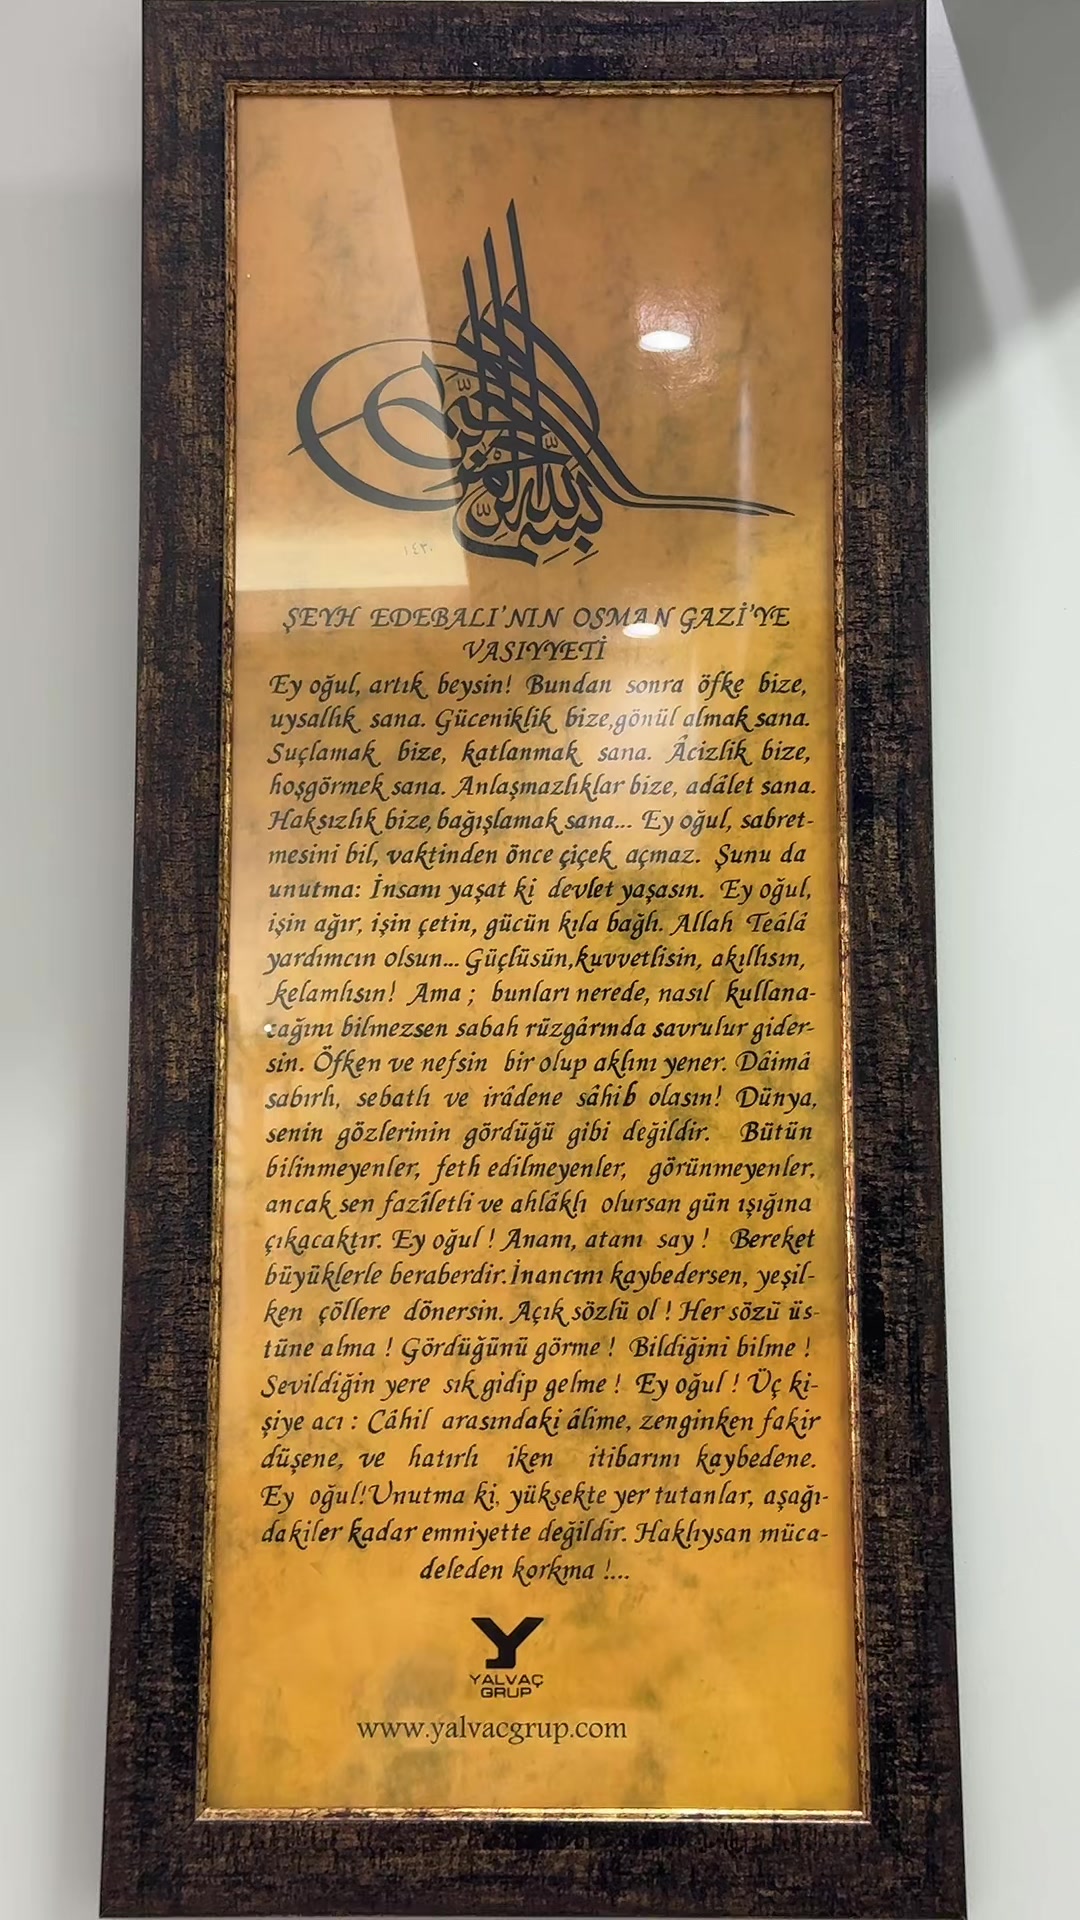 بسم الله الرحمن الرحيم
١٤٣٠
ŞEYH EDEBALI'NIN OSMAN GAZİ'YE
VASIYYETİ
Ey oğul, artık beysin! Bundan sonra öfke bize,
uysallık sana. Güceniklik bize,gönül almak sana.
Suçlamak bize, katlanmak sana. Âcizlik bize,
hoşgörmek sana. Anlaşmazlıklar bize, adâlet sana.
Haksızlık bize,bağışlamak sana... Ey oğul, sabret-
mesini bil, vaktinden önce çiçek açmaz. Şunu da
unutma: İnsanı yaşat ki devlet yaşasın. Ey oğul,
işin ağır, işin çetin, gücün kıla bağlı. Allah Teâlâ
yardımcın olsun... Güçlüsün,kuvvetlisin, akıllısın,
kelamlısın! Ama ; bunları nerede, nasıl kullana-
cağını bilmezsen sabah rüzgârında savrulur gider-
sin. Öfken ve nefsin bir olup aklını yener. Dâimâ
sabırlı, sebatlı ve irâdene sâhib olasın! Dünya,
senin gözlerinin gördüğü gibi değildir. Bütün
bilinmeyenler, feth edilmeyenler, görünmeyenler,
ancak sen fazîletli ve ahlâklı olursan gün ışığına
çıkacaktır. Ey oğul ! Ananı, atanı say ! Bereket
büyüklerle beraberdir.İnancını kaybedersen, yeşil-
ken çöllere dönersin. Açık sözlü ol ! Her sözü üs-
tüne alma ! Gördüğünü görme ! Bildiğini bilme !
Sevildiğin yere sık gidip gelme ! Ey oğul ! Üç ki-
şiye acı : Câhil arasındaki âlime, zenginken fakir
düşene, ve hatırlı iken itibarını kaybedene.
Ey oğul!Unutma ki, yüksekte yer tutanlar, aşağı-
dakiler kadar emniyette değildir. Haklıysan müca-
deleden korkma !...
YALVAÇ
GRUP
www.yalvacgrup.com